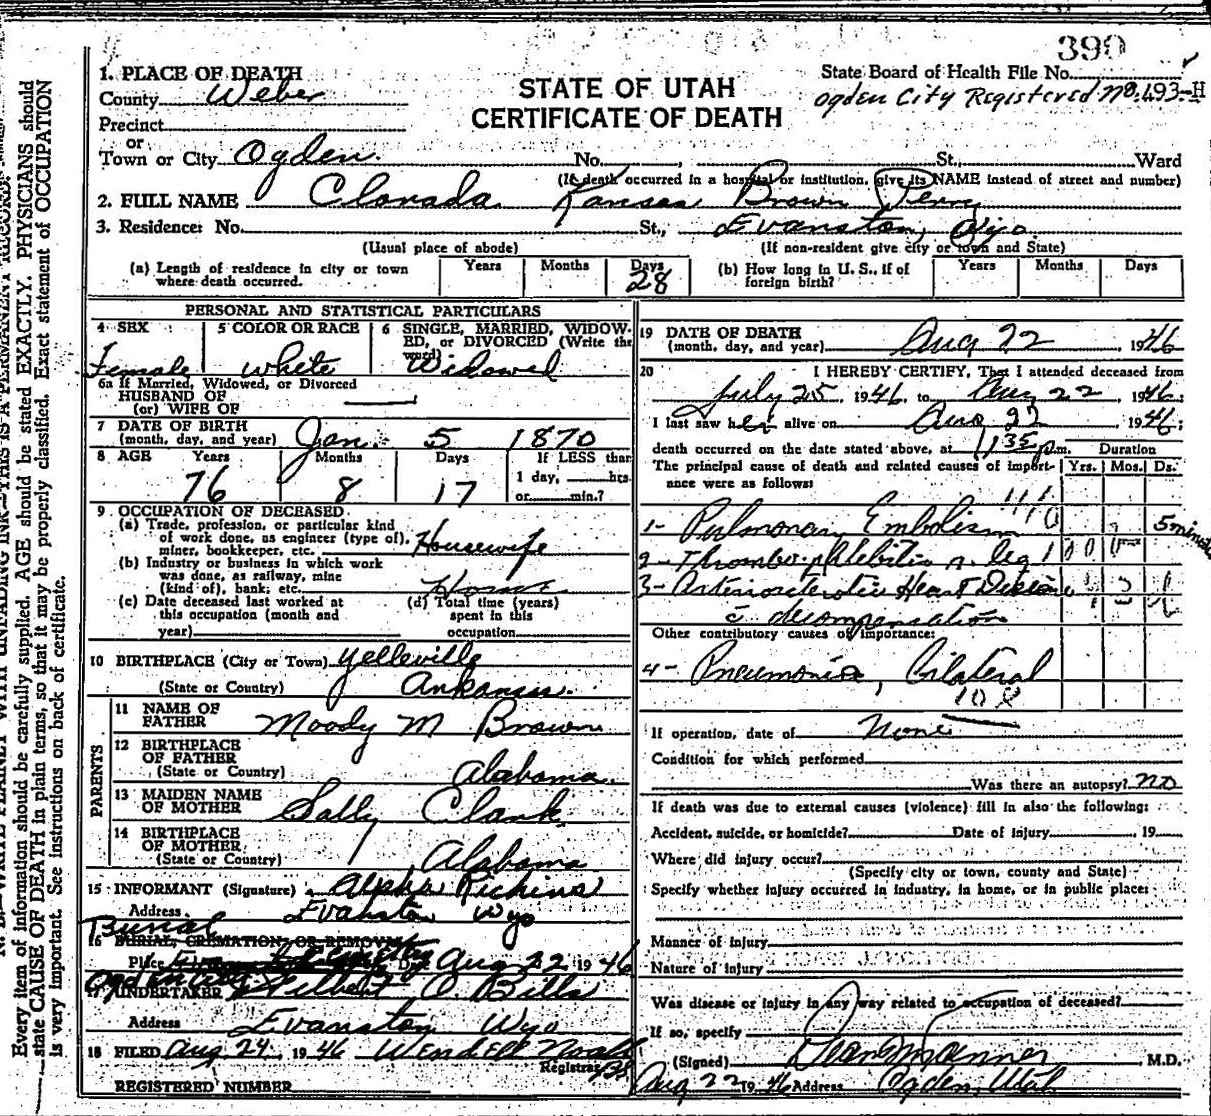 390
1. PLACE OF DEATH
County Weber
Precinct
or
Town or City Ogden No. , St., Ward
STATE OF UTAH
CERTIFICATE OF DEATH
State Board of Health File No.
Ogden City Registered No. 493-H
(If death occurred in a hospital or institution, give its NAME instead of street and number)
2. FULL NAME Clorada Kansas Brown Terry
3. Residence: No. St., Evanston, Wyo.
(Usual place of abode) (If non-resident give city or town and State)
(a) Length of residence in city or town where death occurred. Years Months Days 28
(b) How long in U. S., if of foreign birth? Years Months Days
PERSONAL AND STATISTICAL PARTICULARS
4 SEX Female
5 COLOR OR RACE White
6 SINGLE, MARRIED, WIDOWED, or DIVORCED (Write the word) Widowed
6a If Married, Widowed, or Divorced
HUSBAND OF
(or) WIFE OF
7 DATE OF BIRTH
(month, day, and year) Jan. 5 1870
8 AGE Years 76 Months 8 Days 17 If LESS than 1 day, hrs. or min.?
9 OCCUPATION OF DECEASED
(a) Trade, profession, or particular kind of work done, as engineer (type of), miner, bookkeeper, etc. Housewife
(b) Industry or business in which work was done, as railway, mine (kind of), bank, etc. Home
(c) Date deceased last worked at this occupation (month and year)
(d) Total time (years) spent in this occupation
10 BIRTHPLACE (City or Town) Yelleville
(State or Country) Arkansas.
PARENTS
11 NAME OF FATHER Moody M Brown
12 BIRTHPLACE OF FATHER
(State or Country) Alabama
13 MAIDEN NAME OF MOTHER Sally Clark
14 BIRTHPLACE OF MOTHER
(State or Country) Alabama
15 INFORMANT (Signature) Alpha Richins
Address Evanston Wyo
Burial
16 BURIAL, CREMATION, OR REMOVAL
Place Date Aug 22 1946
17 UNDERTAKER O. Bills
Address Evanston Wyo
18 FILED Aug 24, 1946 Wendell
Registrar
REGISTERED NUMBER
19 DATE OF DEATH
(month, day, and year) Aug 22, 1946
20 I HEREBY CERTIFY, That I attended deceased from
July 25, 1946, to Aug 22, 1946;
I last saw her alive on Aug 22 1946;
death occurred on the date stated above, at 1:35 p.m. Duration
The principal cause of death and related causes of importance were as follows: Yrs. Mos. Ds.
1- Pulmonary Embolism 5 minutes
2- Thrombo-phlebitis r. leg
3- Arteriosclerotic Heart Disease
c̄ decompensation
Other contributory causes of importance:
4- Pneumonia, bilateral
If operation, date of None
Condition for which performed
Was there an autopsy? no
If death was due to external causes (violence) fill in also the following:
Accident, suicide, or homicide? Date of injury , 19
Where did injury occur?
(Specify city or town, county and State)
Specify whether injury occurred in industry, in home, or in public place:
Manner of injury
Nature of injury
Was disease or injury in any way related to occupation of deceased?
If so, specify
(Signed) M.D.
Aug 22 1946 Address Ogden, Utah
Every item of information should be carefully supplied. AGE should be stated EXACTLY. PHYSICIANS should
state CAUSE OF DEATH in plain terms, so that it may be properly classified. Exact statement of OCCUPATION
is very important. See instructions on back of certificate.